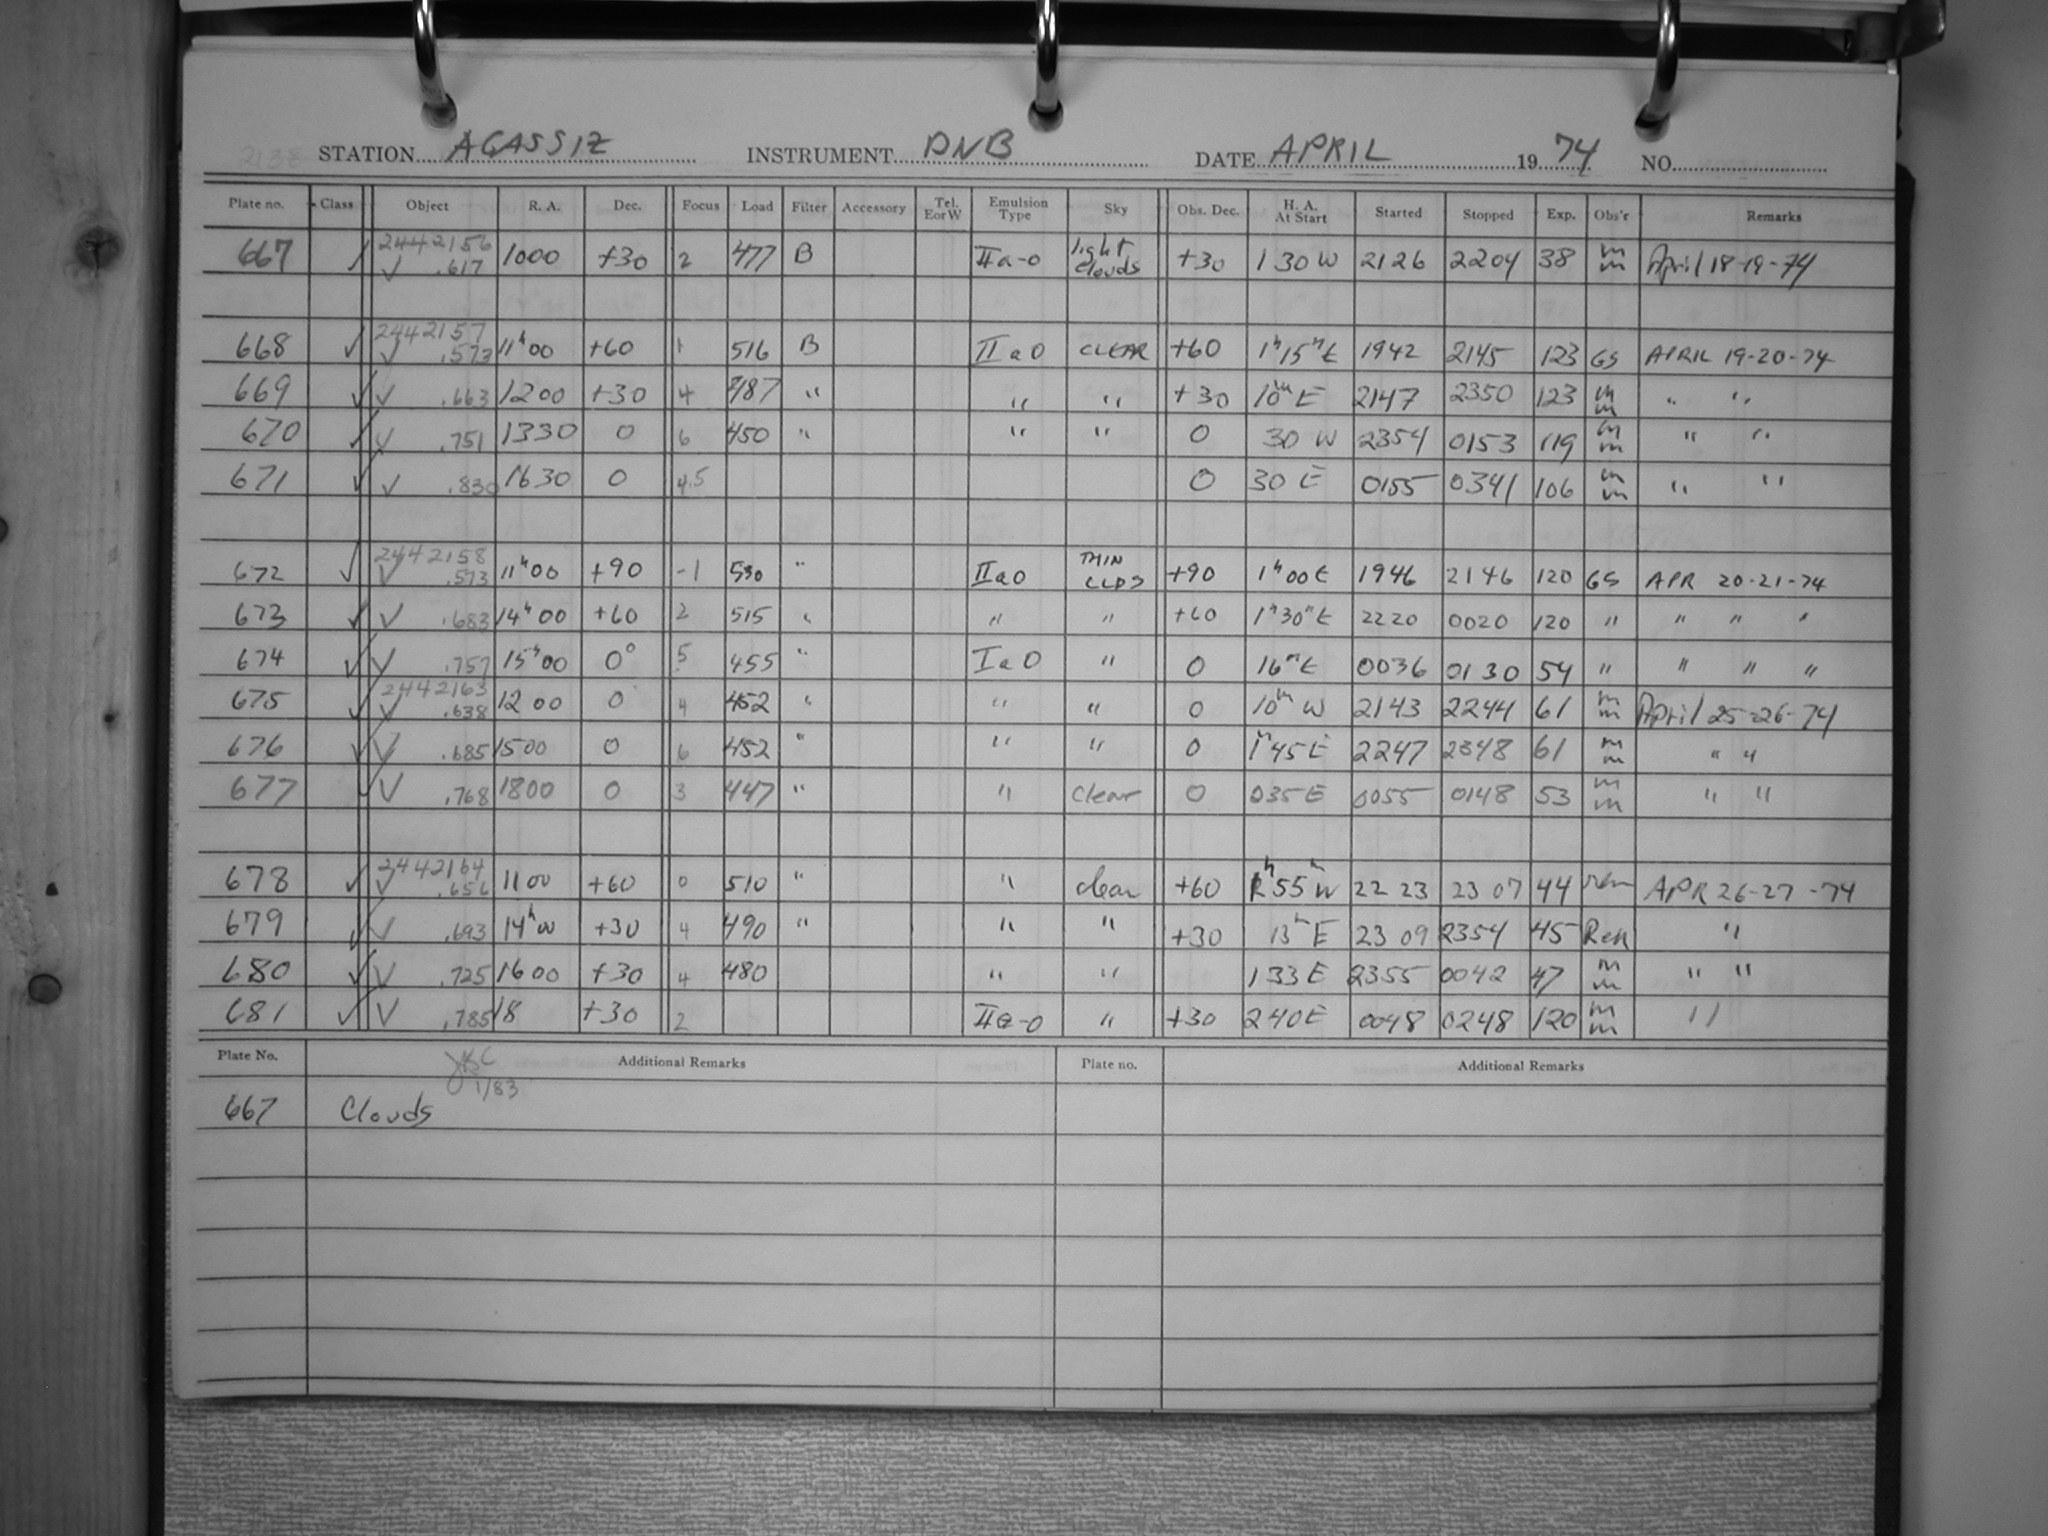 STATION AGASSIZ INSTRUMENT DNB DATE APRIL 1974 NO.
Plate no. Class Object R. A. Dec. Focus Load Filter Accessory Tel. E or W Emulsion Type Sky Obs. Dec. H. A. At Start Started Stopped Exp. Obs'r Remarks
667 ✓ 2442156 ✓ .617 1000 +30 2 477 B IIa-O light clouds +30 1 30 W 2126 2204 38 mm April 18-19-74
668 ✓ 2442157 ✓ .573 11h00 +60 1 516 B IIaO CLEAR +60 1h15m E 1942 2145 123 GS APRIL 19-20-74
669 ✓ ✓ .663 1200 +30 4 487 " " " +30 10m E 2147 2350 123 mm " "
670 ✓ ✓ .751 1330 0 6 450 " " " 0 30 W 2354 0153 119 mm " "
671 ✓ ✓ .830 1630 0 4.5 0 30 E 0155 0341 106 mm " "
672 ✓ 2442158 ✓ .573 11h00 +90 -1 530 " IIaO THIN CLDS +90 1h00 E 1946 2146 120 GS APR 20-21-74
673 ✓ ✓ .683 14h00 +60 2 515 " " " +60 1h30m E 2220 0020 120 " " " "
674 ✓ ✓ .757 15h00 0° 5 455 " IaO " 0 16m E 0036 0130 54 " " " "
675 ✓ 2442163 ✓ .638 1200 0 4 452 " " " 0 10m W 2143 2244 61 mm April 25-26-74
676 ✓ ✓ .685 1500 0 6 452 " " " 0 1h45 E 2247 2348 61 mm " "
677 ✓ ✓ .768 1800 0 3 447 " " clear 0 035 E 0055 0148 53 mm " "
678 ✓ 2442164 ✓ .656 1100 +60 0 510 " " clear +60 55m W 22 23 23 07 44 APR 26-27-74
679 ✓ ✓ .693 14h00 +30 4 490 " " " +30 13m E 23 09 2354 45 "
680 ✓ ✓ .725 1600 +30 4 480 " " 133 E 2355 0042 47 mm " "
681 ✓ ✓ .785 18 +30 2 IIa-O " +30 240 E 0048 0248 120 mm "
Plate No. Additional Remarks Plate no. Additional Remarks
1/83
667 Clouds